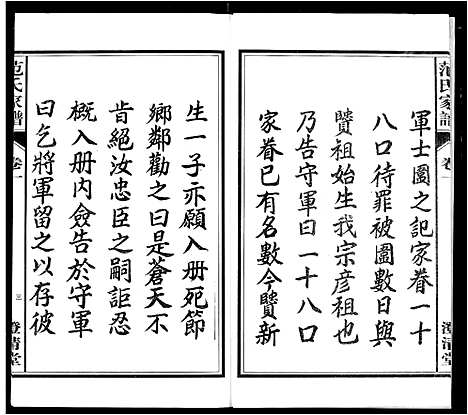 范氏家譜
卷一
澄清堂
軍士圖之記家眷一十
八口待罪被圖數日與
贒祖始生我宗彦祖也
乃告守軍曰一十八口
家眷已有名數今贒新
生一子亦願入册死節
鄉鄰勸之曰是蒼天不
肯絕汝忠臣之嗣詎忍
概入册内僉告於守軍
曰乞將軍留之以存彼
范氏家譜
卷一
三
澄清堂